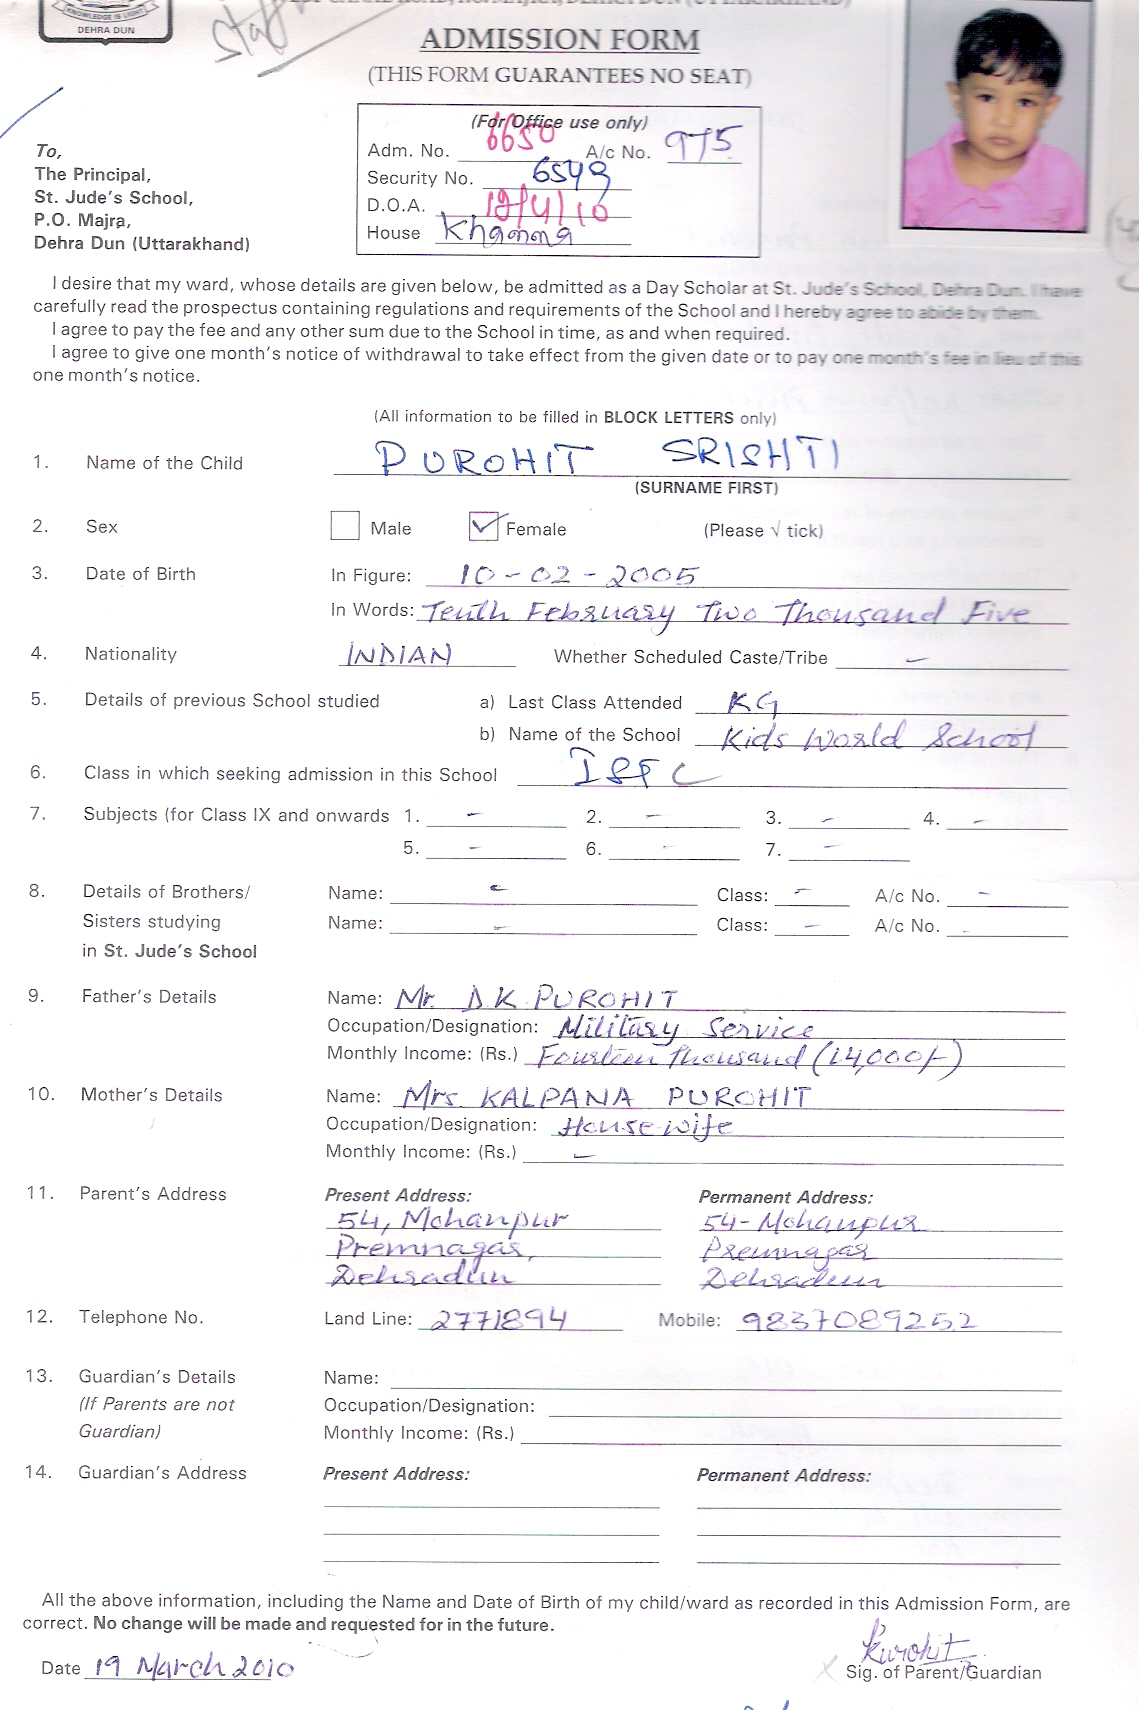 KNOWLEDGE IS LIGHT
DEHRA DUN
Staff
ADMISSION FORM
(THIS FORM GUARANTEES NO SEAT)
(For Office use only)
Adm. No. 6650 A/c No. 975
Security No. 6549
D.O.A. 12/4/10
House Khanna
To,
The Principal,
St. Jude's School,
P.O. Majra,
Dehra Dun (Uttarakhand)
I desire that my ward, whose details are given below, be admitted as a Day Scholar at St. Jude's School, Dehra Dun. I have
carefully read the prospectus containing regulations and requirements of the School and I hereby agree to abide by them.
I agree to pay the fee and any other sum due to the School in time, as and when required.
I agree to give one month's notice of withdrawal to take effect from the given date or to pay one month's fee in lieu of this
one month's notice.
(All information to be filled in BLOCK LETTERS only)
1. Name of the Child PUROHIT SRISHTI
(SURNAME FIRST)
2. Sex Male Female (Please √ tick)
3. Date of Birth In Figure: 10-02-2005
In Words: Tenth February Two Thousand Five
4. Nationality INDIAN Whether Scheduled Caste/Tribe -
5. Details of previous School studied a) Last Class Attended KG
b) Name of the School Kids World School
6. Class in which seeking admission in this School IST C
7. Subjects (for Class IX and onwards 1. - 2. - 3. - 4. -
5. - 6. - 7. -
8. Details of Brothers/ Name: - Class: - A/c No. -
Sisters studying Name: - Class: - A/c No. -
in St. Jude's School
9. Father's Details Name: Mr. D K PUROHIT
Occupation/Designation: Military Service
Monthly Income: (Rs.) Fourteen Thousand (14,000/-)
10. Mother's Details Name: Mrs. KALPANA PUROHIT
Occupation/Designation: House wife
Monthly Income: (Rs.) -
11. Parent's Address Present Address: Permanent Address:
54, Mohanpur 54-Mohanpur
Premnagar, Premnagar
Dehradun Dehradun
12. Telephone No. Land Line: 2771894 Mobile: 9837089252
13. Guardian's Details Name:
(If Parents are not Occupation/Designation:
Guardian) Monthly Income: (Rs.)
14. Guardian's Address Present Address: Permanent Address:
All the above information, including the Name and Date of Birth of my child/ward as recorded in this Admission Form, are
correct. No change will be made and requested for in the future.
Date 19 March 2010 Purohit
Sig. of Parent/Guardian